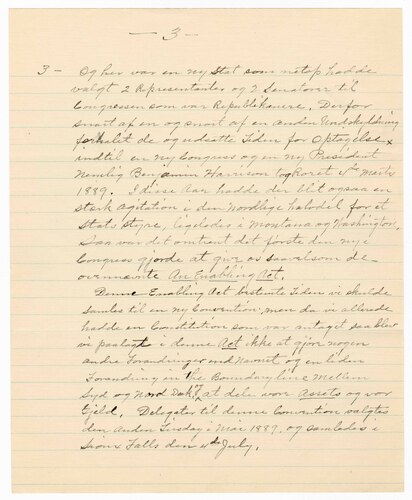 — 3 —
3 - Og her var en ny Stat som netop hadde
valgt 2 Representanter og 2 Senatorer til
Congressen som var Republikanere. Derfor
snart af en og snart af en anden Undskyldning
forhalet de og udsatte Tiden for Optagelse
indtil en ny Congress og en ny President
Nemlig Benjamin Harrison tog Koret 4de Marts
1889. I disse Aar hadde der blit ogsaa en
sterk Agitation i den Nordlige halvdel for et
Stats styre, ligeledes i Montana og Washington,
Saa var det omtrent dit förste den nye
Congress gjorde at give os saavelsom de
ovennevnte An Enabling Act.
Denne Enabling Act bestemte Tiden vi skulde
samles til en ny Convention, men da vi allerede
hadde en Constitution som var antaget saa blev
vi paalagt i denne Act ikke at gjøre nogen
andre Forandringer end Navnet og en liden
Forandring in the Boundary line Mellem
Syd og Nord Dak, at dele vore Assets og vor
Gjeld. Delegater til denne Convention valgtes
den anden Tuesday i Mai 1889, og samledes i
Sioux Falls den 4de July.